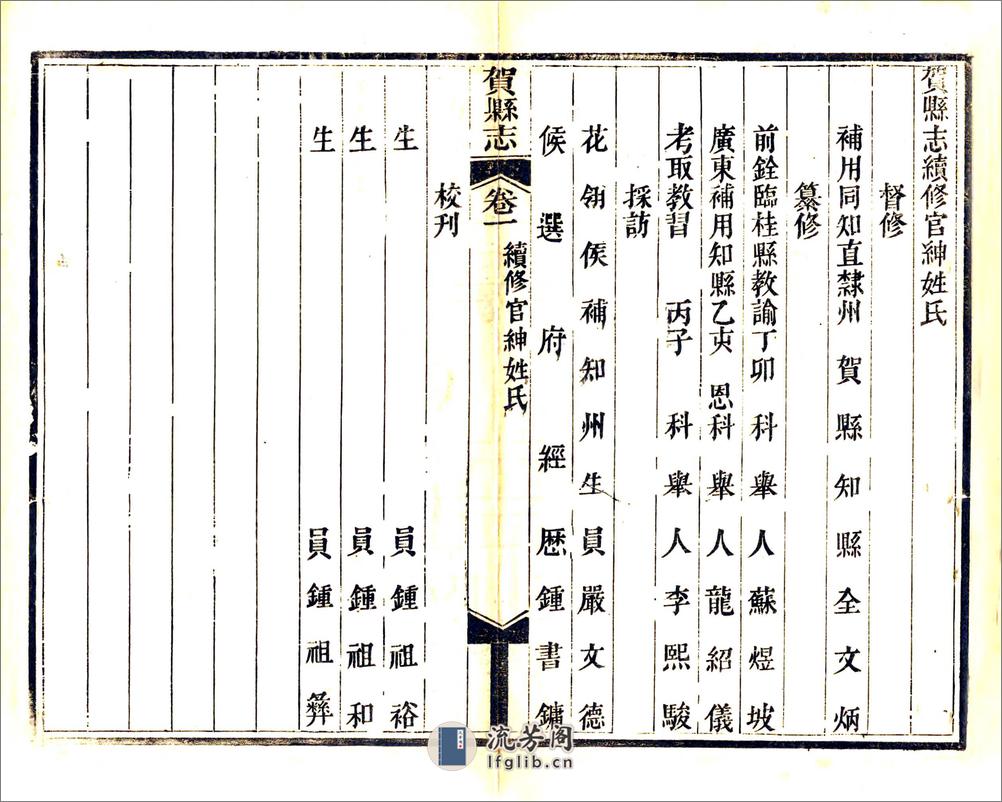 賀縣志續修官紳姓氏
督修
補用同知直隸州賀縣知縣全文炳
纂修
前銓臨桂縣教諭丁卯科舉人蘇煜坡
廣東補用知縣乙亥恩科舉人龍紹儀
考取教習丙子科舉人李熙駿
採訪
花翎候補知州生員嚴文德
候選府經歷鍾書鏞
賀縣志
卷一
續修官紳姓氏
校刊
生員鍾祖裕
生員鍾祖和
生員鍾祖彝
流芳阁
lfglib.cn